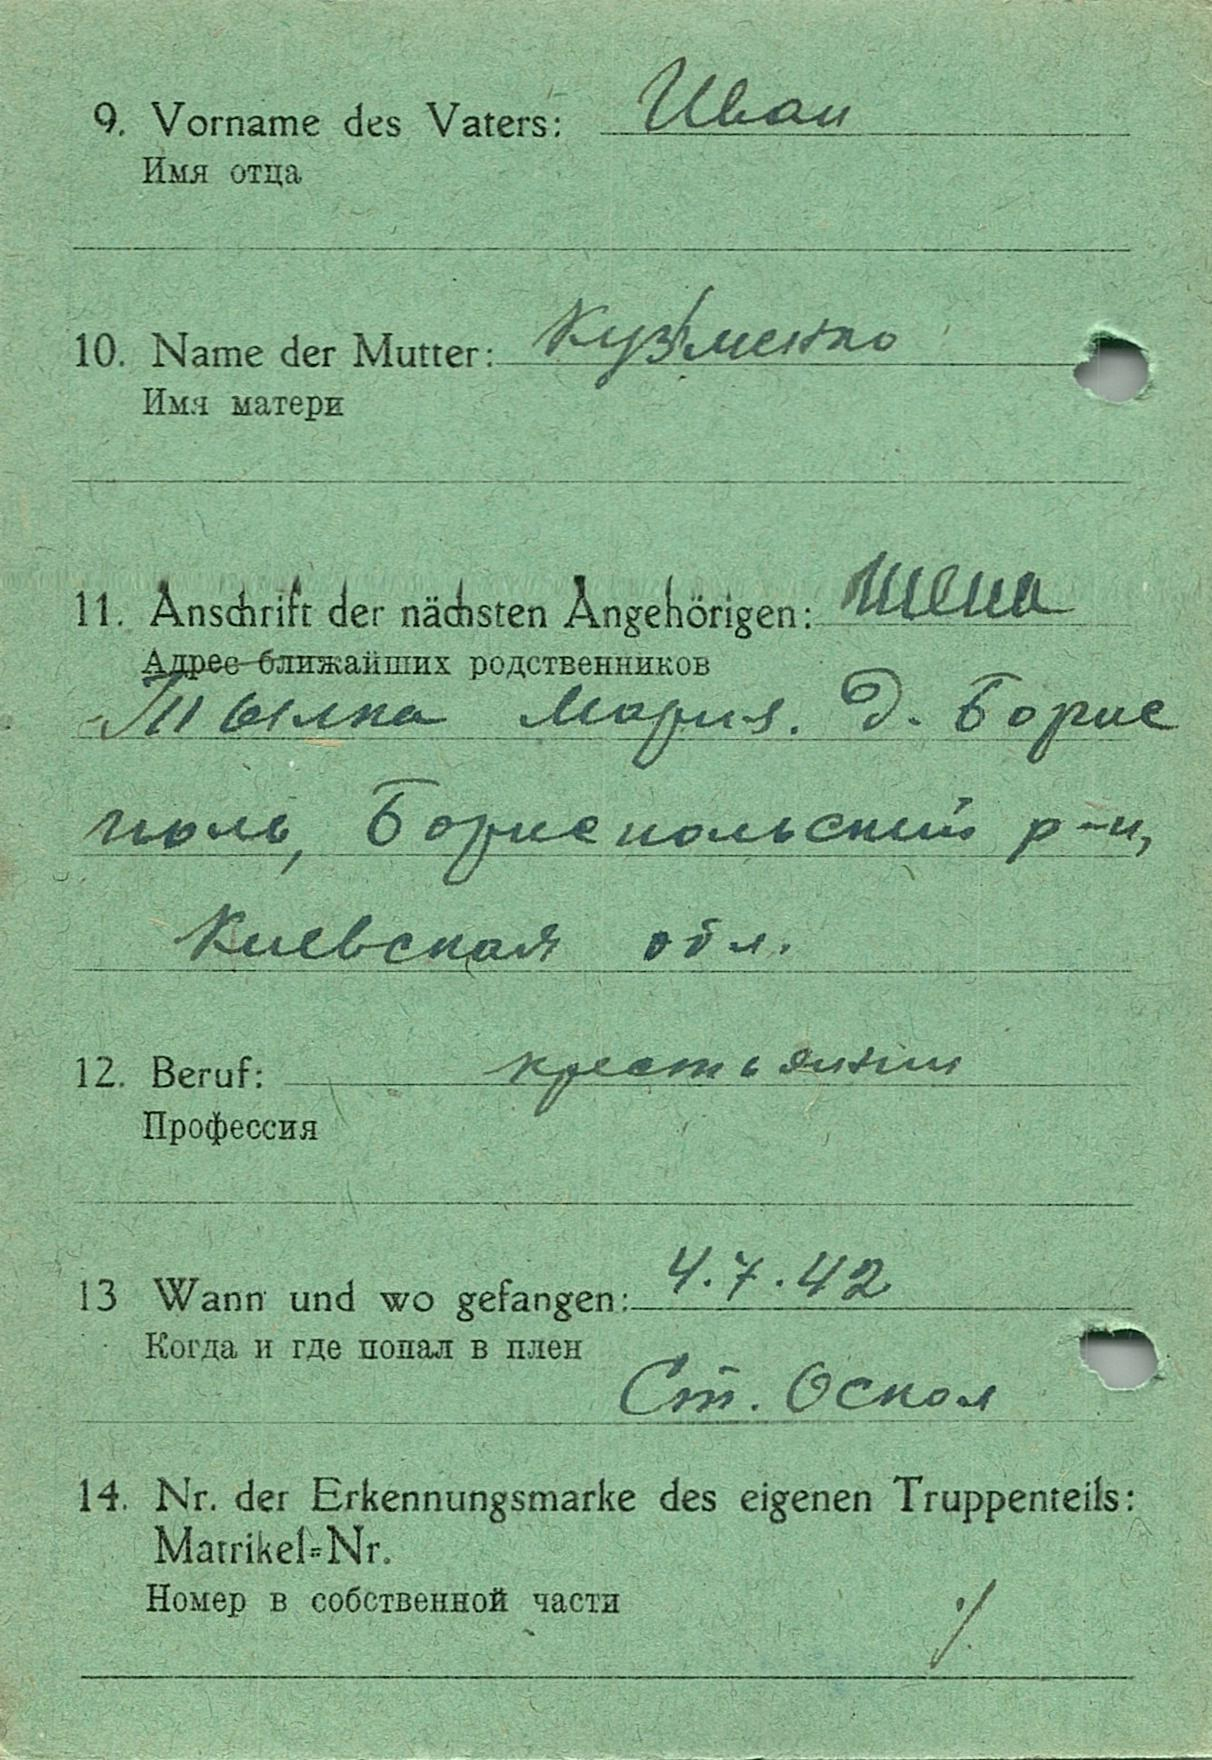 9. Vorname des Vaters: Иван
Имя отца
10. Name der Mutter: Кузьменко
Имя матери
11. Anschrift der nächsten Angehörigen: жена
Адрес ближайших родственников
Мария. Д. Борис
поль, Бориспольский р-н,
Киевская обл.
12. Beruf: крестьянин
Профессия
13 Wann und wo gefangen: 4.7.42
Когда и где попал в плен
Ст. Оскол
14. Nr. der Erkennungsmarke des eigenen Truppenteils:
Matrikel=Nr.
Номер в собственной части